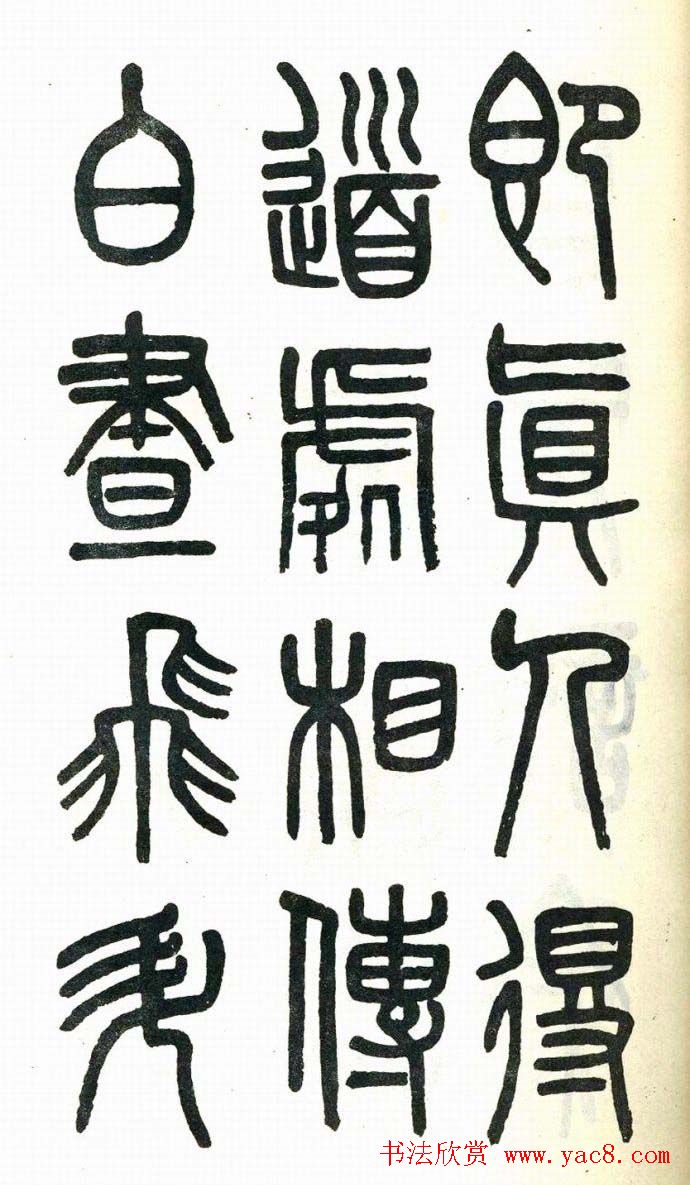 即真人得
道處相傳
白晝飛升
书法欣赏 www.yac8.com